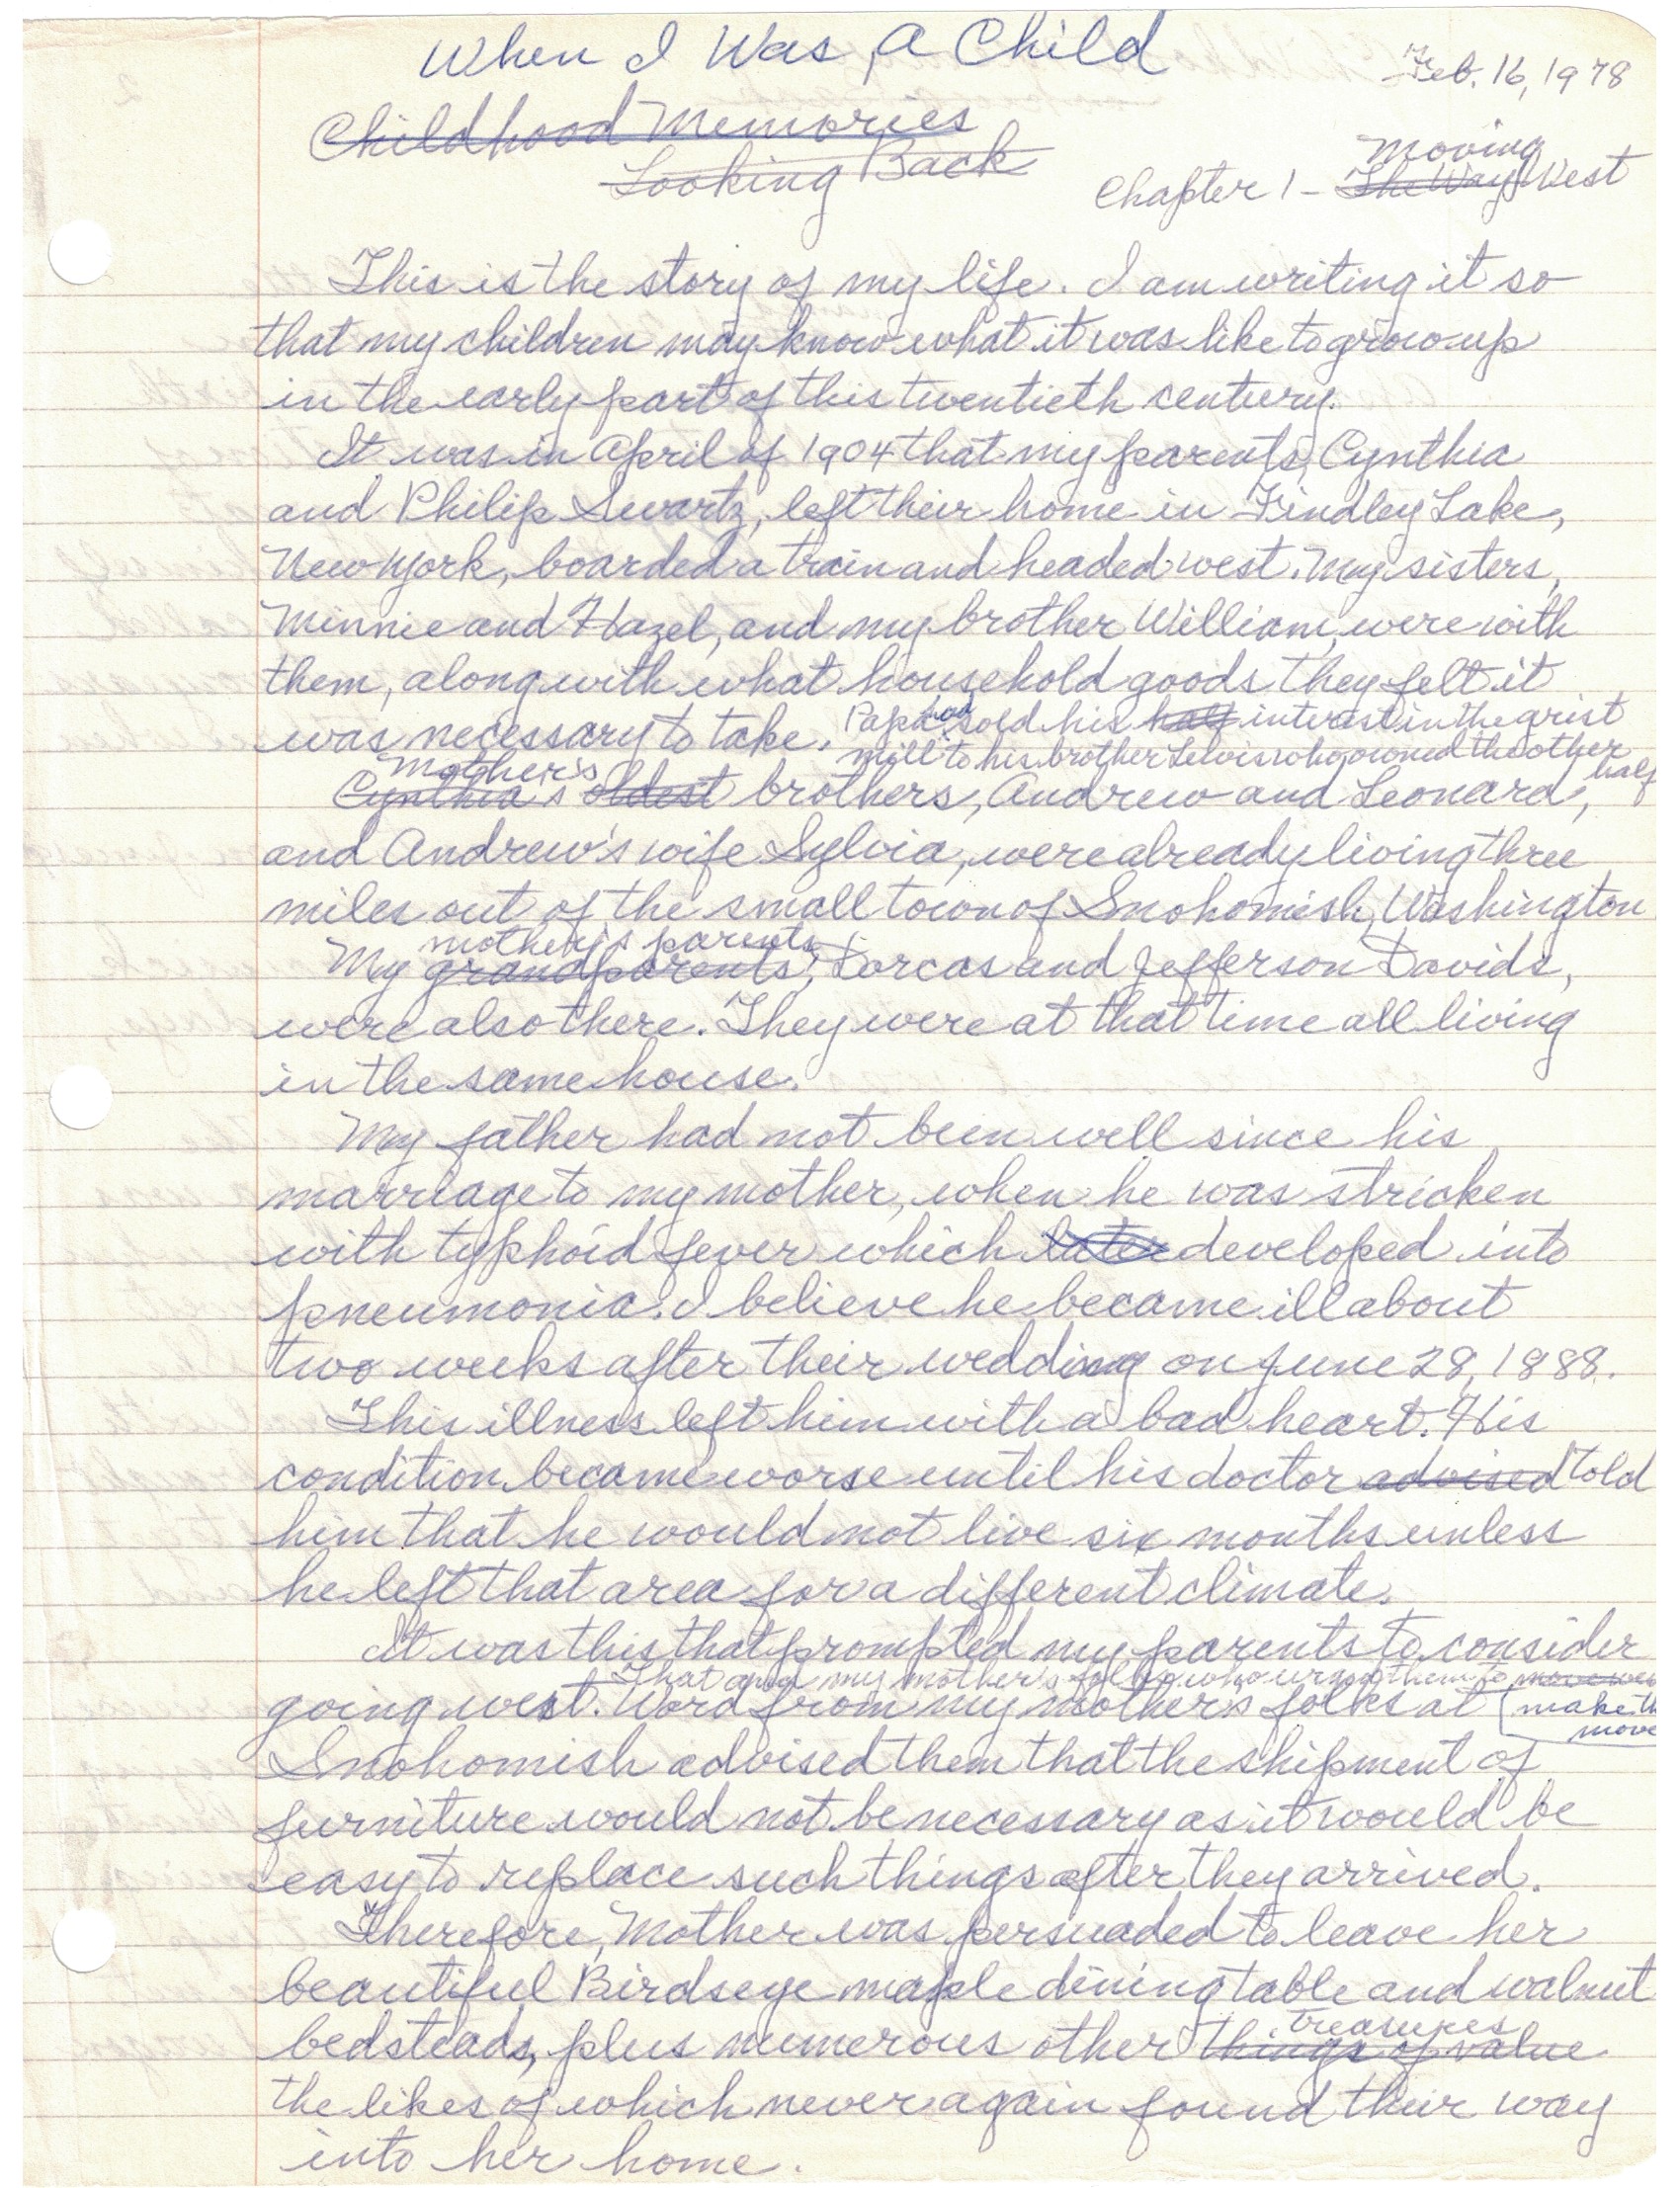 When I Was A Child
Feb. 16, 1978
Childhood Memories
Looking Back
Moving
Chapter 1 - The Way West
This is the story of my life. I am writing it so
that my children may know what it was like to grow up
in the early part of this twentieth century.
It was in April of 1904 that my parents, Cynthia
and Philip Swartz, left their home in Findley Lake,
New York, boarded a train and headed west. My sisters,
Minnie and Hazel, and my brother William, were with
them, along with what household goods they felt it
was necessary to take. Papa had sold his half interest in the grist
mill to his brother Lewis who owned the other half
Mother's
Cynthia's oldest brothers, Andrew and Leonard,
and Andrew's wife Sylvia, were already living three
miles out of the small town of Snohomish, Washington
mother's parents,
My grandparents, Dorcas and Jefferson Davids,
were also there. They were at that time all living
in the same house.
My father had not been well since his
marriage to my mother, when he was stricken
with typhoid fever which later developed into
pneumonia. I believe he became ill about
two weeks after their wedding on June 28, 1888.
This illness left him with a bad heart. His
condition became worse until his doctor advised told
him that he would not live six months unless
he left that area for a different climate.
It was this that prompted my parents to consider
That and my mother's folks who urged them to move
going west. Word from my mother's folks at
make
move
Snohomish advised them that the shipment of
furniture would not be necessary as it would be
easy to replace such things after they arrived.
Therefore, Mother was persuaded to leave her
beautiful Birdseye maple dining table and walnut
treasures
bedsteads, plus numerous other things of value
the likes of which never again found their way
into her home.